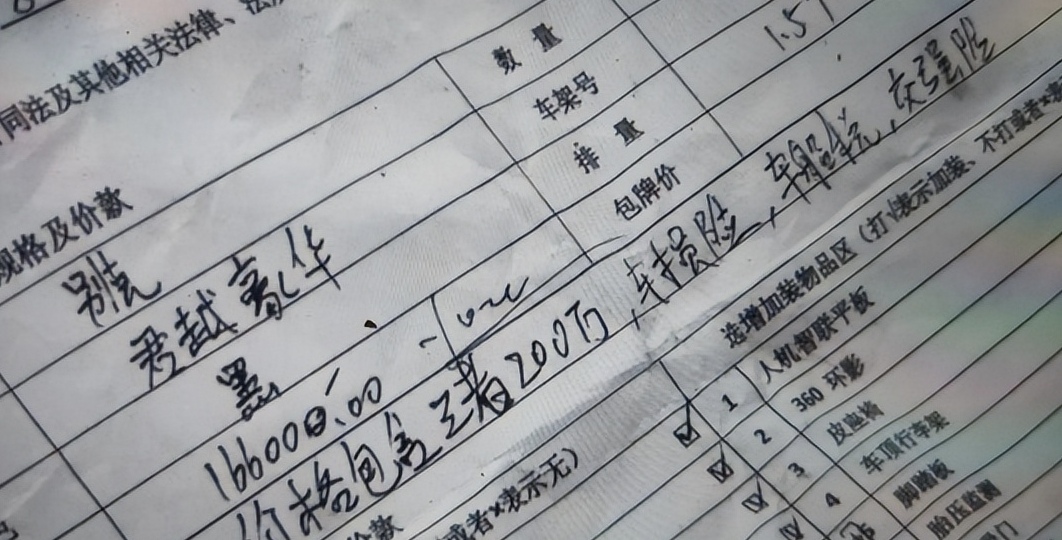 同法及其他相关法律、法
规格及价款
数量
别克
车架号
君越豪华
排量 1.5T
黑
包牌价
166000.00
价格包含三者200万，车损险，车船税，交强险
价款
或者×表示无）
选增加装物品区（打√表示加装、不打或者×表
☑ 1 人机智联平板
☑ 2 360 环影
☑ 3 皮座椅
☑ 4 车顶行李架
5 脚踏板
胎压监测